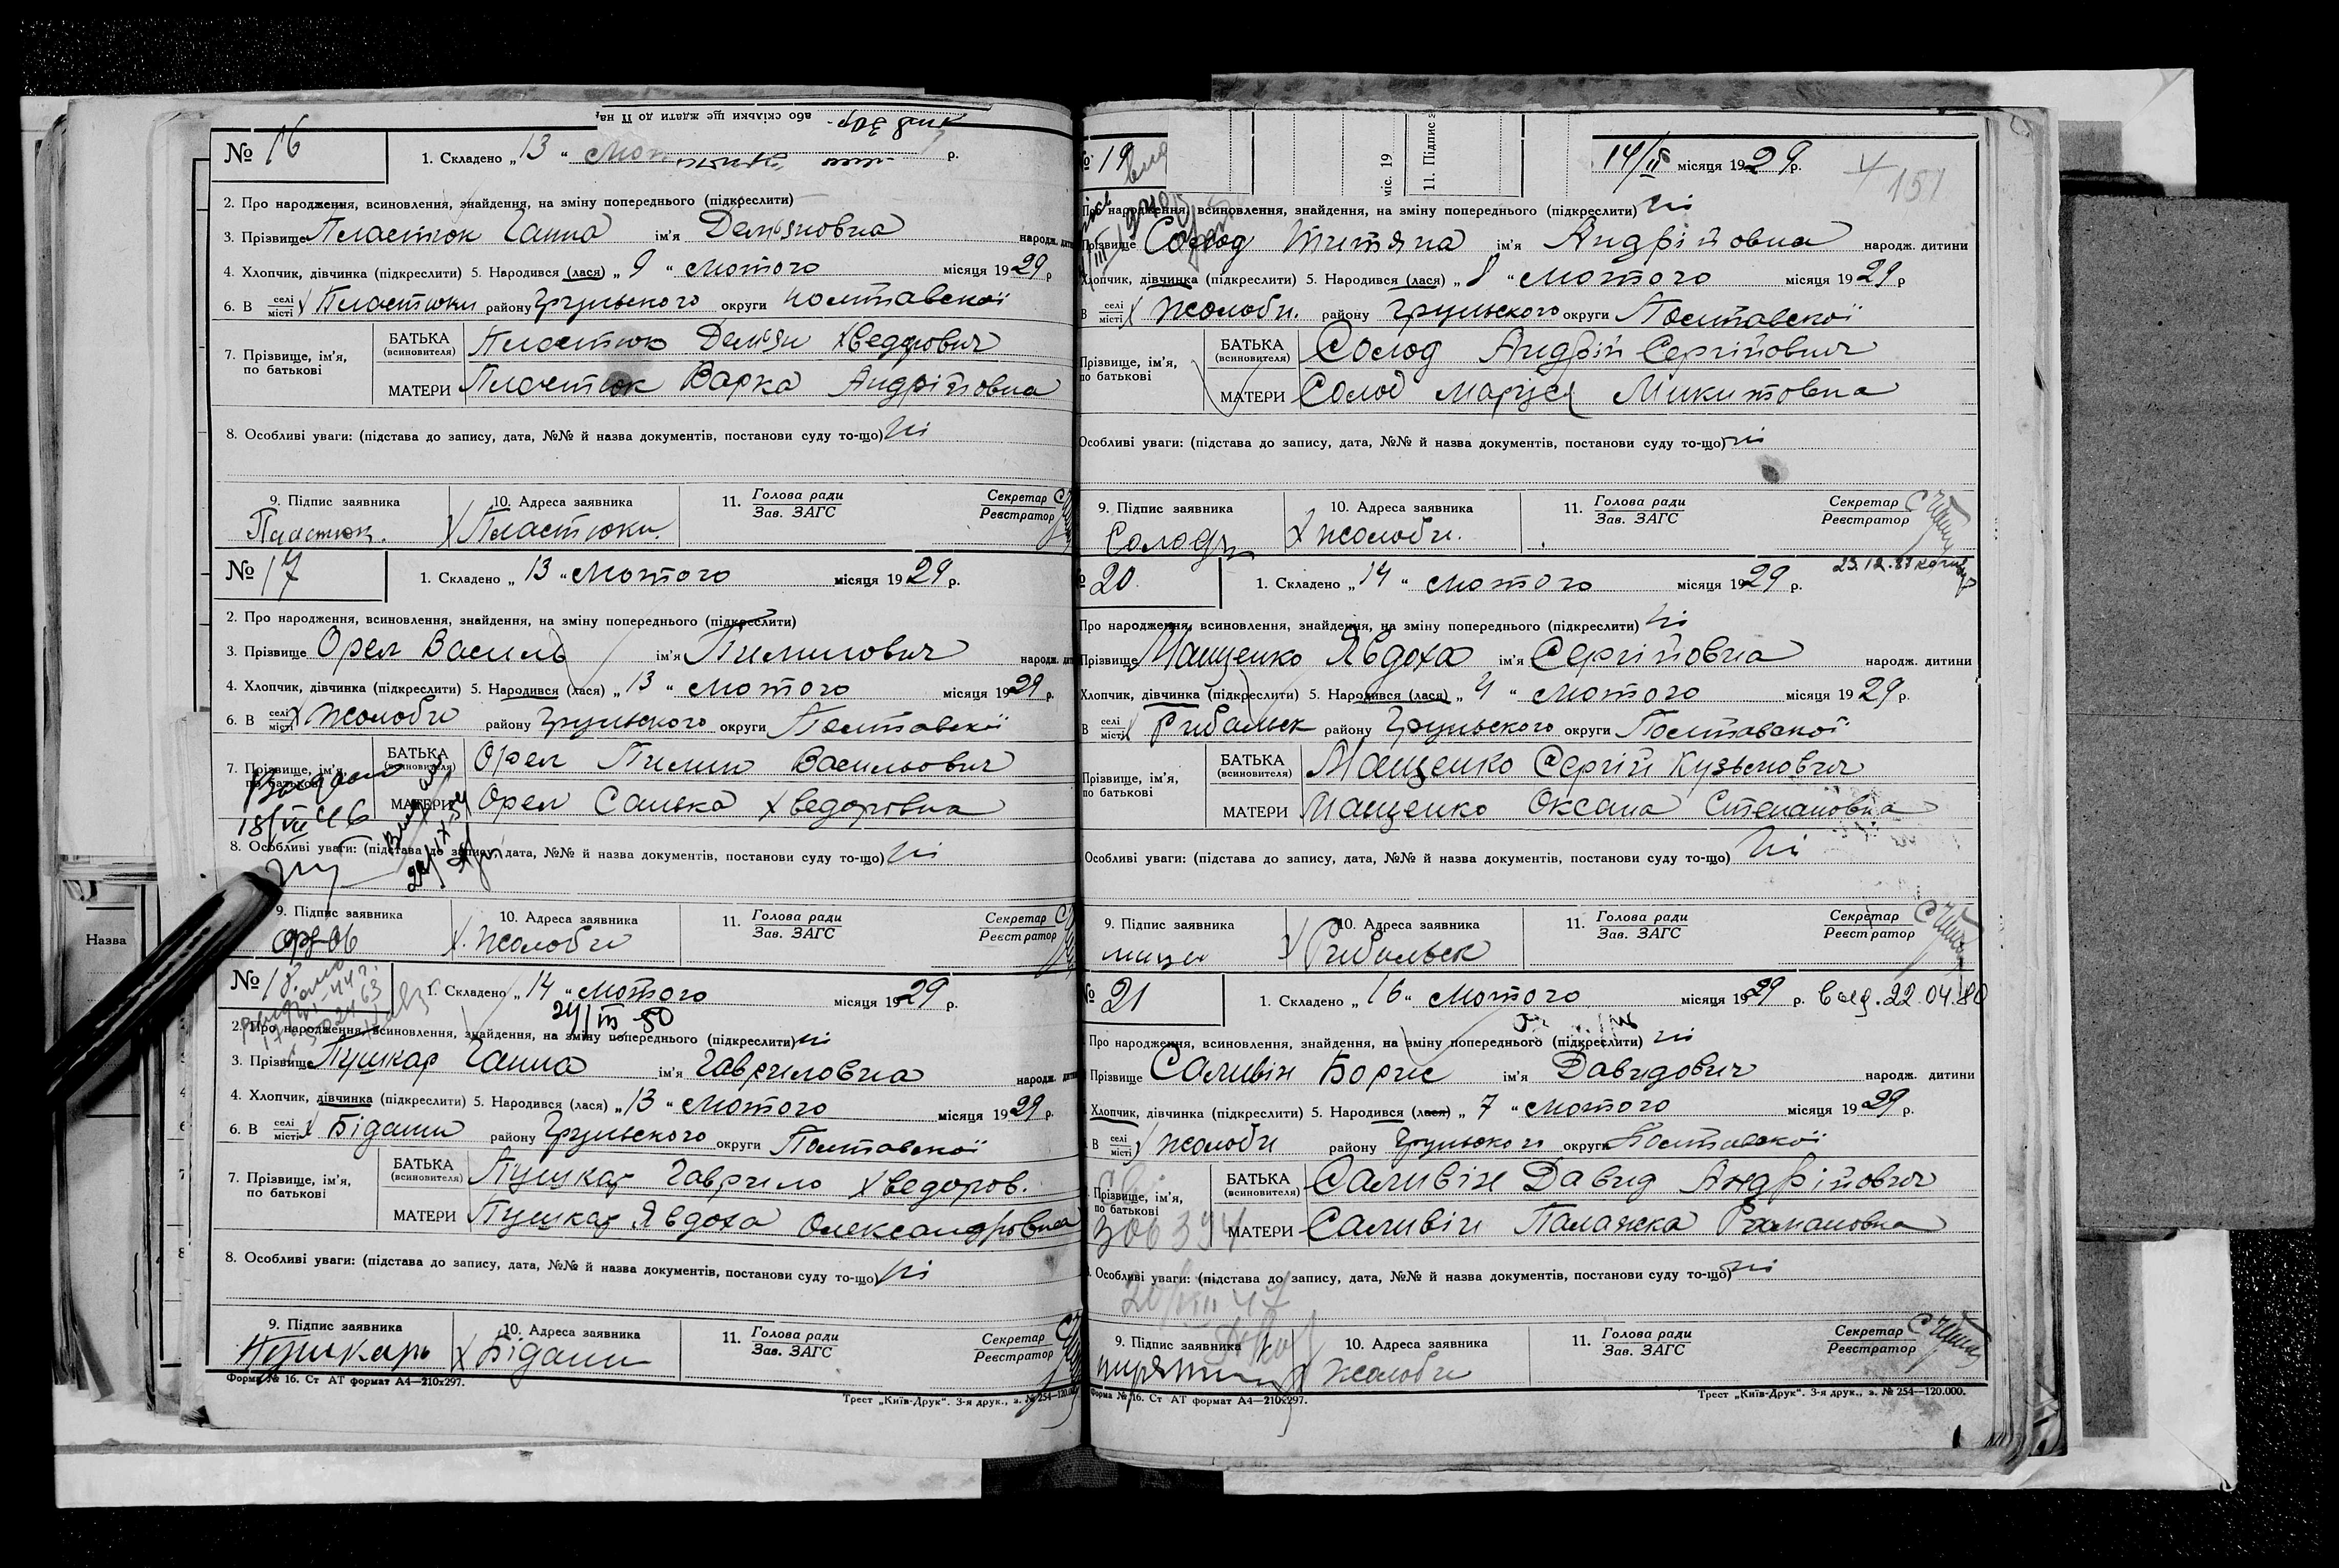 або скільки ждати до II на
№ 16
1. Складено „ 13 “ р.
2. Про народження, всиновлення, знайдення, на зміну попереднього (підкреслити)
3. Прізвище Пластюк Ганна ім'я Демяновна народж. дити
4. Хлопчик, дівчинка (підкреслити) 5. Народився (лася) „ 9 “ Лютого місяця 1929 р
6. В селі місті х Пластюки району Грунського округи Полтавської
7. Прізвище, ім'я, по батькові
БАТЬКА (всиновителя) Пластюк Демян Хведорович
МАТЕРИ Пластюк Варка Андрійовна
8. Особливі уваги: (підстава до запису, дата, №№ й назва документів, постанови суду то-що) Ні
9. Підпис заявника 10. Адреса заявника 11. Голова ради Зав. ЗАГС Секретар Реєстратор
Пластюк. х Пластюки.
№ 17
1. Складено „ 13 “ Лютого місяця 1929 р.
2. Про народження, всиновлення, знайдення, на зміну попереднього (підкреслити)
3. Прізвище Орел Василь ім'я Пилипович народж. дити
4. Хлопчик, дівчинка (підкреслити) 5. Народився (лася) „ 13 “ Лютого місяця 1929 р.
6. В селі місті х Жолоби району Грунського округи Полтавскої
7. Прізвище, ім'я, по батькові
БАТЬКА (всиновителя) Орел Пилип Васильович
МАТЕРИ Орел Санька Хведоровна
18/VII 46
8. Особливі уваги: (підстава до запису, дата, №№ й назва документів, постанови суду то-що) Ні
9. Підпис заявника 10. Адреса заявника 11. Голова ради Зав. ЗАГС Секретар Реєстратор
х. Жолоби
№ 18.
1. Складено „ 14 “ Лютого місяця 1929 р.
24/III 50
2. Про народження, всиновлення, знайдення, на зміну попереднього (підкреслити) ні
3. Прізвище Пушкар Ганна ім'я Гавриловна народж. дити
4. Хлопчик, дівчинка (підкреслити) 5. Народився (лася) „ 13 “ Лютого місяця 1929 р.
6. В селі місті х Бідани району Грунського округи Полтавської
7. Прізвище, ім'я, по батькові
БАТЬКА (всиновителя) Пушкар Гаврило Хведоров.
МАТЕРИ Пушкар Явдоха Олександровна
8. Особливі уваги: (підстава до запису, дата, №№ й назва документів, постанови суду то-що) Ні
9. Підпис заявника 10. Адреса заявника 11. Голова ради Зав. ЗАГС Секретар Реєстратор
Пушкарь х Бідани
Форма № 16. Ст АТ формат А4—210х297.
Трест „Київ-Друк“. 3-я друк., з. № 254—120.000
№ 19
міс. 19
11. Підпис з
14/II місяця 1929 р.
151
Про народження, всиновлення, знайдення, на зміну попереднього (підкреслити) Ні
Прізвище Солод Титяна ім'я Андрійовна народж. дитини
Хлопчик, дівчинка (підкреслити) 5. Народився (лася) „ 8 “ Лютого місяця 1929 р
В селі місті х Жолоби. району Грунського округи Полтавської
Прізвище, ім'я, по батькові
БАТЬКА (всиновителя) Солод Андрій Сергійович
МАТЕРИ Солод Маруся Микитовна
Особливі уваги: (підстава до запису, дата, №№ й назва документів, постанови суду то-що) ні
9. Підпис заявника 10. Адреса заявника 11. Голова ради Зав. ЗАГС Секретар Реєстратор
Солод х Жолоби.
№ 20.
1. Складено „ 14 “ Лютого місяця 1929 р.
Про народження, всиновлення, знайдення, на зміну попереднього (підкреслити) Ні
Прізвище Мащенко Явдоха ім'я Сергійовна народж. дитини
Хлопчик, дівчинка (підкреслити) 5. Народився (лася) „ 4 “ Лютого місяця 1929 р.
В селі місті х Рибальск району Грунського округи Полтавскої
Прізвище, ім'я, по батькові
БАТЬКА (всиновителя) Мащенко Сергій Кузьмович
МАТЕРИ Мащенко Оксана Степановна
Особливі уваги: (підстава до запису, дата, №№ й назва документів, постанови суду то-що) Ні
9. Підпис заявника 10. Адреса заявника 11. Голова ради Зав. ЗАГС Секретар Реєстратор
х Рибальск
№ 21
1. Складено „ 16 “ Лютого місяця 1929 р. 22.04.80
Про народження, всиновлення, знайдення, на зміну попереднього (підкреслити) ні
Прізвище Саливін Борис ім'я Давидович народж. дитини
Хлопчик, дівчинка (підкреслити) 5. Народився (лася) „ 7 “ Лютого місяця 1929 р.
В селі місті х Жолоби району Грунского округи Полтавскої
Прізвище, ім'я, по батькові
БАТЬКА (всиновителя) Саливін Давид Андрійович
МАТЕРИ Саливін Палажка Романовна
306394
Особливі уваги: (підстава до запису, дата, №№ й назва документів, постанови суду то-що) ні
20/VIII 47
9. Підпис заявника 10. Адреса заявника 11. Голова ради Зав. ЗАГС Секретар Реєстратор
х Жолоби
Форма № 16. Ст АТ формат А4—210х297.
Трест „Київ-Друк“. 3-я друк., з. № 254—120.000.
Назва